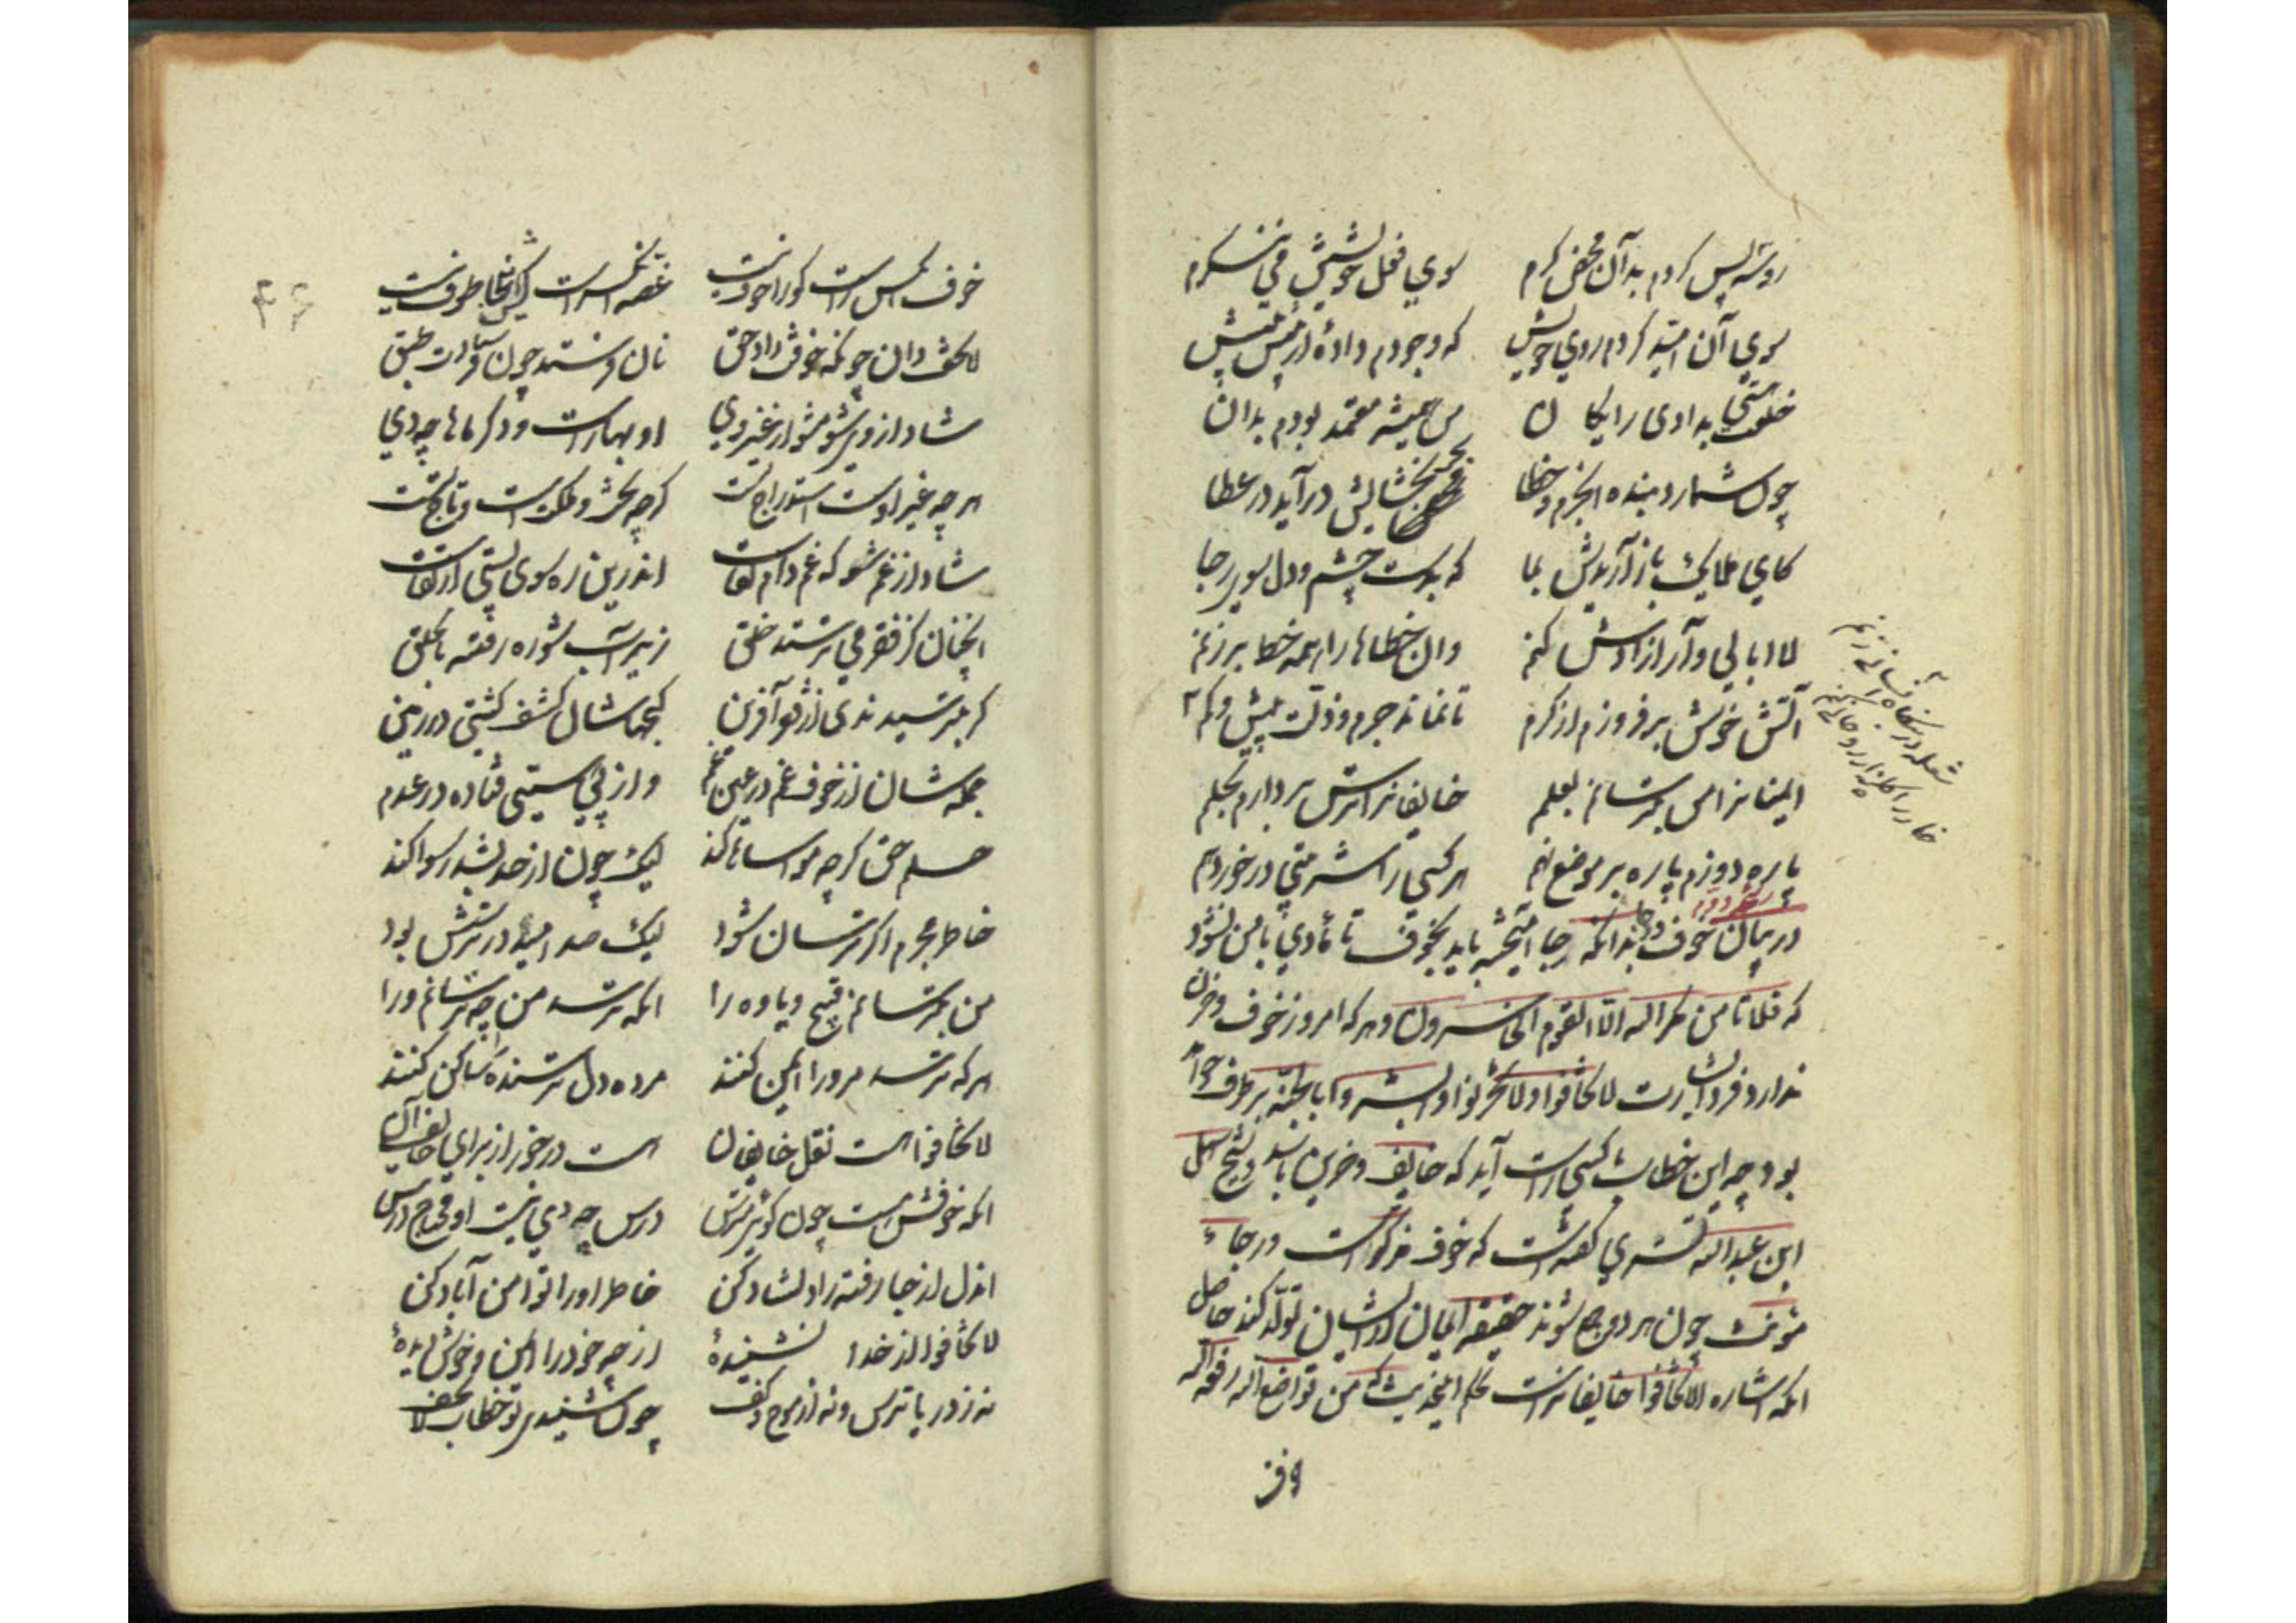 رو سپس کردم بدان محض کرم سوی فعل خویشتن می ننگرم
سوی آن امید کردم روی خویش که وجودم دادهٔ از پیش پیش
خلعت هستی بدادی رایکان من همیشه معتمد بودم بدان
چون شمارد بنده این جرم و خطا محض بخشایش درآید در عطا
کای ملایک باز آریدش بما که بدست چشم و دل سوی رجا
لا ابالی وار آزادش کنم وان خطاها را همه خط بر زنم
آتش خوش بر فروزم از کرم تا نماند جرم و ذلت بیش و کم
شعله در بنگاه انسانی زنیم
خار را گلزار روحانی کنیم
ایمنانرا من بترسانم بعلم خایفانرا ترس بردارم بحلم
پاره دوزم پاره بر موضع نهم هر کسی را شربتی درخور دهم
در بیان خوف و رجا بدانکه رجا آمیخته باید بخوف تا مؤدی با من نشود
که فلا تامن مکر الله الا القوم الخاسرون و هر که امروز خوف و حزن
ندارد فردا بشارت لا تخافوا و لا تحزنوا و ابشروا بالجنة بر طرف
بود چه این خطاب کسی راست آید که خایف و حزین باشد و شیخ سهل
ابن عبدالله تستری گفته است که خوف مذکر است و رجاء
مؤنث چون هر دو جمع شوند حقیقة ایمان از ایشان تولد کند حاصل
انکه اشاره الا تخافوا خایفانراست بحکم این حدیث که من تواضع لله رفعه الله
خوف انکس راست کو را خوف نیست غصه انکس را کش اینجا طوف نیست
لا تخف دان چونکه خوفت داد حق نان فرستد چون فرستادت طبق
شاد از وی شو مشو از غیر وی او بهارست و دکرها ماه دی
هر چه غیر اوست استدراج تست کرچه تخت و ملکتست و تاج تست
شاد از غم شو که غم دام لقاست اندرین ره سوی پستی ارتقاست
انچنان کز فقر می ترسند خلق زیر آب شوره رفته تا بحلق
کر بترسیدندی از فقر آفرین کنجهاشان کشف کشتی در زمین
جمله شان از خوف غم در عین غم در پی هستی فتاده در عدم
حلم حق کرچه مواساها کند لیک چون از حد بشد رسوا کند
خاطر مجرم اکر ترسان شود لیک صد امید در ترسش بود
من بترسانم وقیح و یاوه را انکه ترسد من چه ترسانم ورا
هر که ترسد مر ورا ایمن کنند مرده دل ترسنده را ساکن کنند
لا تخافوا هست نقل خایفان هست درخور از برای خایف آن
انکه خوفش نیست چون کویی مترس درس چه دهی نیست او محتاج درس
اندل از جا رفته را دلشاد کن خاطر او را تو امن آباد کن
لا تخافوا از خدا نشنیدهٔ از چه خود را ایمن و خوش دیدهٔ
نه ز دریا ترس و نه از موج و کف چون شنیدی تو خطاب لا تخف